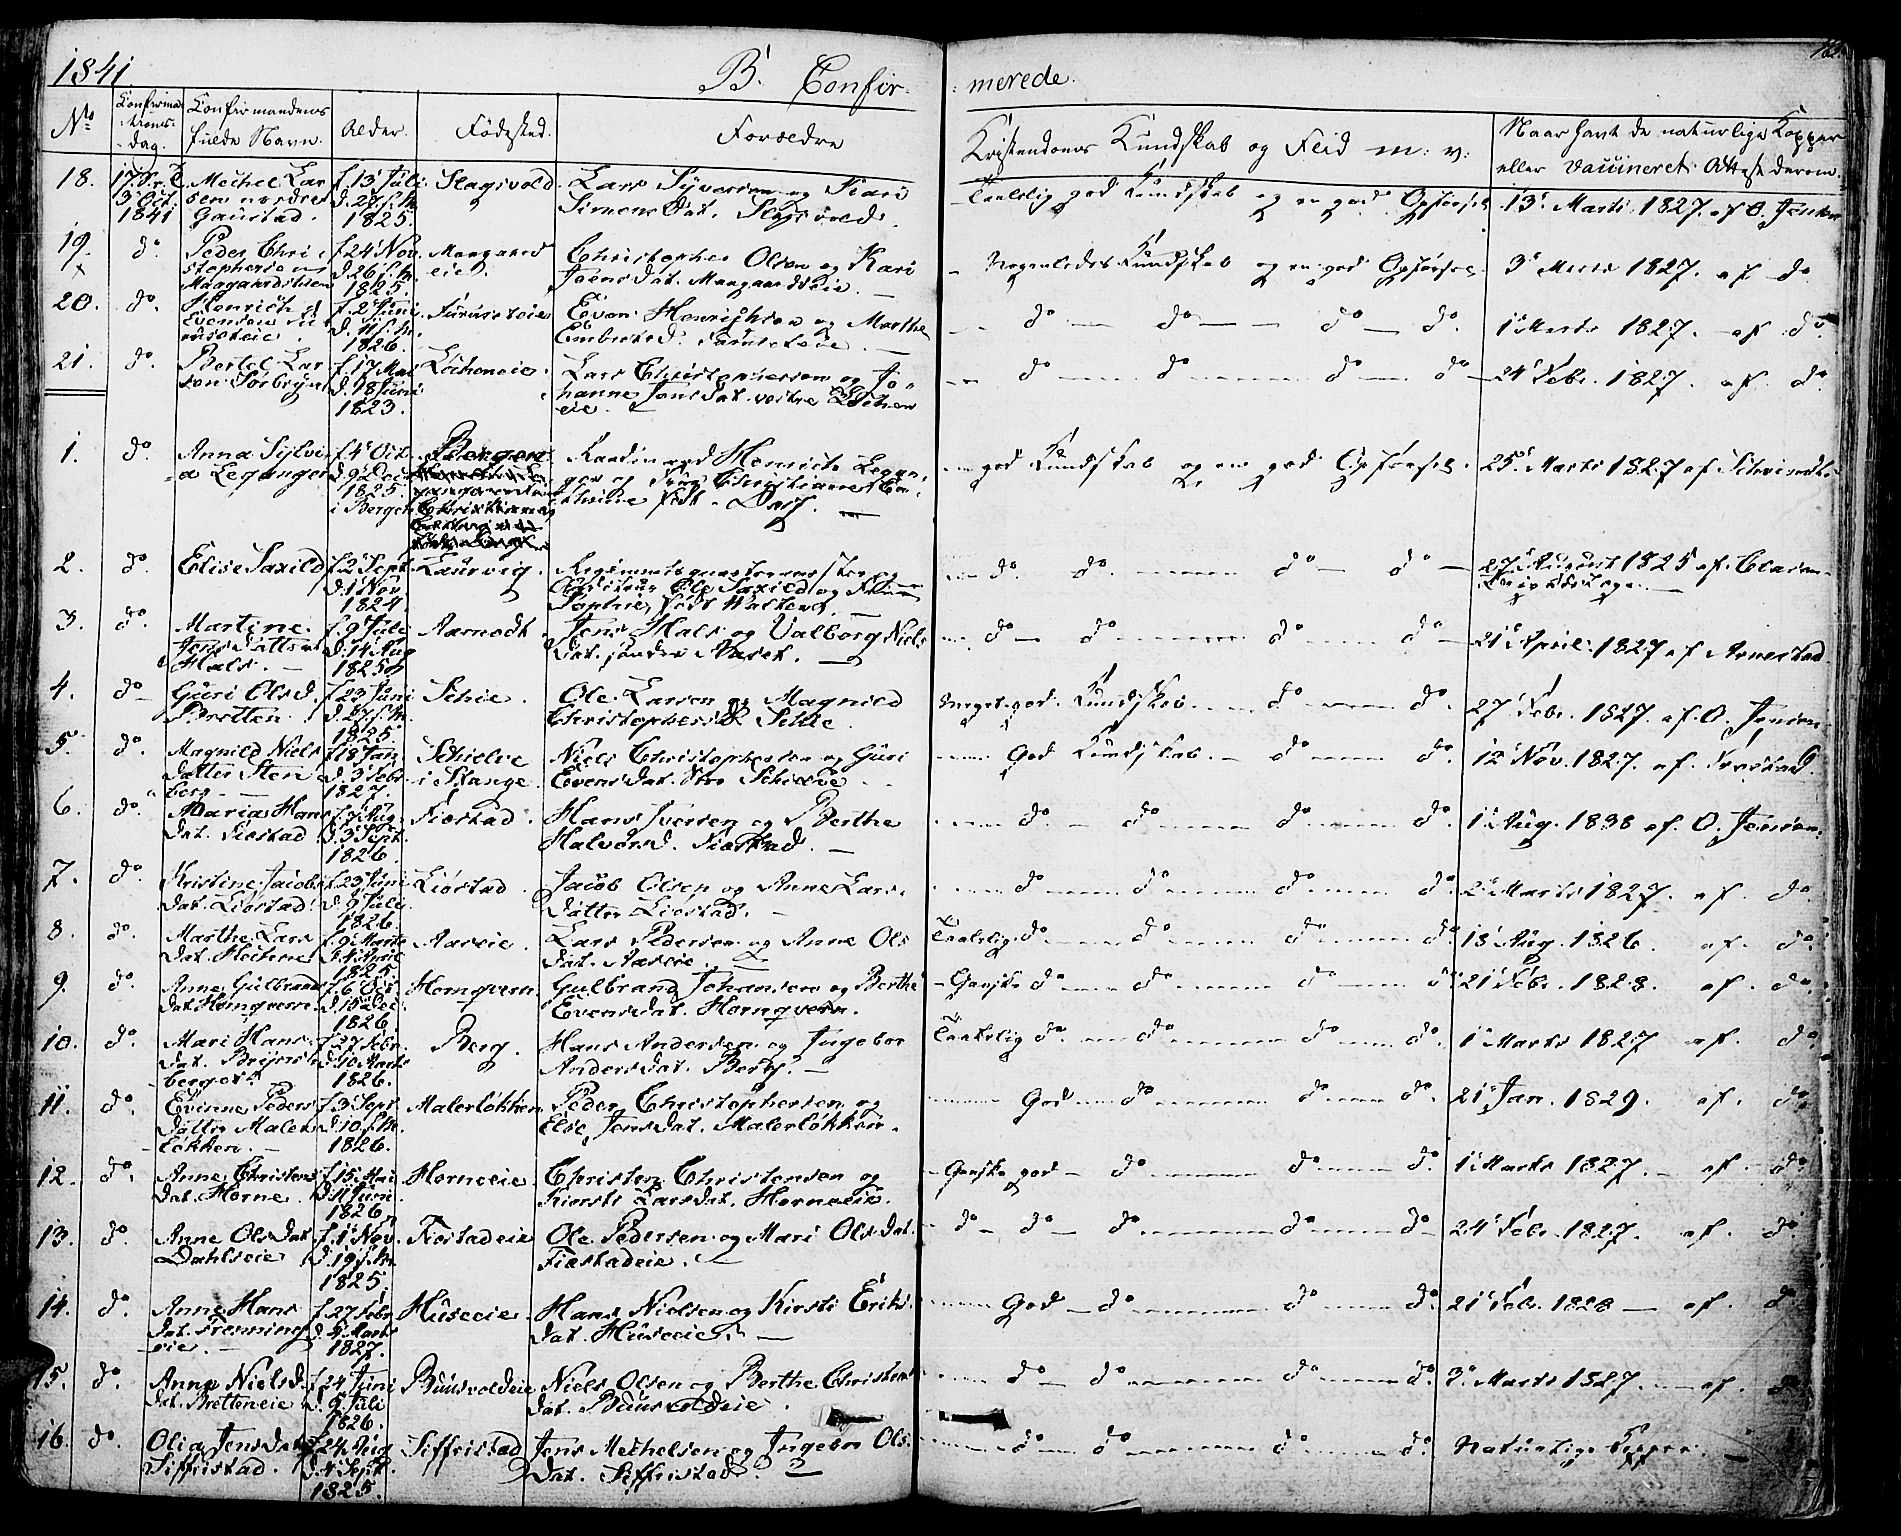 1841
B. Confir-
merede.
No
Confirma-
tions-
dag.
Confirmandens
fulde Navn.
Alder.
Fødested.
Forældre
Kristendoms Kundskab og Flid m: v:
Naar havt de naturlige Kopper
eller vaccineret. Attest derom.
18.
17. S. e. T.
3 Oct.
1841
Mechel Lar
sen nordre
Gaustad.
f. 13 Juli
d. 28 s. M.
1825.
Slagsvold.
Lars Syversen og Kari
Simens Dat. Slagsvold.
Taalelig god Kundskab og en god Opførsel
13 Marts 1827. af O. Jensen
19.
x
do.
Peder Chri
stophersen
Maagaardseien
f. 24 Nov.
d. 26 s. M.
1825.
Maagaards
eie.
Christopher Olsen og Kari
Jens Dat. Maagaardseie.
Nogenledes Kundskab og en god Opførsel.
3 Marts 1827. af do
20.
do.
Henrich
Evensen
f. 2 Juni
d. 11 s. M.
1826.
Even Henrichsen og Marthe
Embretsd.
do do do do.
1 Marts 1827. af do.
21.
do.
Bertel Lar
sen Sørbryn
f. 17 Mai
d. 18 Juni
1823.
Locheneie.
Lars Christophersen og Jo-
hanne Jens Dat.
eie.
do do do do
24 Febr. 1827. af. do.
1.
do.
Anna Sylvi
a Leganger
f. 4 Oct.
d. 9 Dec
1825.
i Bergen
Bergen
Henrich Legan-
ger og
god Kundskab og en god Opførsel.
25 Marts 1827 af
2.
do.
Elise Saxild
f. 2 Sept.
d. 1 Nov.
1824.
Laurvig.
Regimentsqvarteermester og
Ole Saxild og
Sophie, født
do. do. do do
27 August 1825 af
3.
do.
Martine
Jens Datter
Hals.
f. 9 Juli
d. 14 Aug
1825
Aamodt.
Jens Hals og Valborg Niels
Dat. søndre Aaset.
do do do do
21 April 1827 af Arnestad
4.
do
Guri Olsd.
Bretten.
f. 23 Juni
d. 27 s. M.
1825
Schie.
Ole Larsen og Magnild
Christophersd. Schie.
Meget god Kundskab do do.
27 Febr. 1827. af. O. Jensen
5.
do.
Magnild Niels
datter Sten
berg.
f. 18 Jan
d. 3 Febr
1827.
Schielve
i Stange.
Niels Christophersen og Guri
Evens Dat. Schielve
God Kundskab. do do.
12 Nov. 1827. af.
6.
do.
Maria Hans
Dat. Fiostad
d. 3 Sept.
1826.
Fiostad.
Hans Iversen og Berthe
Halvorsd. Fiostad.
do do do do.
1 Aug. 1838 af. O. Jensen.
7.
do.
Kristine Jacobs
Dat. Liostad.
f. 23 Juni
d. 9 Juli.
1826.
Liostad.
Jacob Olsen og Anne Lars-
Datter Liostad.
do do do do.
2 Marts 1827. af. do.
8.
do.
Marthe Lars
f. 9 Marts
1825
Aaseie.
Lars Pedersen og Anne Ols
Dat. Aaseie.
Taalelig do do do do.
18 Aug. 1826. af. do.
9.
do.
Anne Gulbrand
Dat. Hornqvern.
1826.
Hornqvern.
Gulbrand Johansen og Berthe
Evens Dat. Hornqvern.
Ganske do do do do
21 Febr. 1828. af. do.
10.
do.
Mari Hans
Dat.
f. 27 Febr.
d. 10 Marts
1826.
Berg.
Hans Andersen og Ingebor
Anders Dat. Berg.
Taalelig do. do do do.
1 Marts 1827 af. do.
11.
do.
Evinne Peders
Datter Maler
løkken.
f. 3 Sept
d. 10 s. M.
1826.
Malerløkken
Peder Christophersen og
Else Jensdat. Malerløkken.
God do do do.
21 Jan. 1829. af. do.
12.
do.
Anne Christens
Dat. Horne.
f. 15 Mai
d. 11 Juni
1826.
Horneeie.
Christen Christensen og
Kiersti Larsdat. Horneeie.
Ganske god do do do.
1 Marts 1827. af. do.
13.
do.
Anne Ols Dat
Dahlseie
f. 1 Nov.
d. 19 s. M.
1825.
Fiostadeie
Ole Pedersen og Mari Olsdat.
Fiostadeie.
do do do do do
24 Febr. 1827. af. do.
14.
do.
Anne Hans
Dat. Frenning
eie.
f. 27 Febr
d. 4 Marts
1827.
Huseeie.
Hans Nielsen og Kirsti Eriks
Dat. Huseeie.
God do do do.
21 Febr. 1828 af. do
15.
do.
Anne Nielsd
Dat. Bretteneie
f. 24 Juni
d. 9 Juli
1826.
Buusvoldeie
Niels Olsen og Berthe Christens
Dat. Buusvoldeie.
do do do do.
3 Marts 1827. af. do
16.
do.
Olia Jensdat
Siffristad.
f. 24 Aug
d. 4 Sept.
1825.
Siffristad
Jens Mechelsen og Ingebor Ols.
Dat. Siffristad.
do do do do.
Naturlige Kopper.